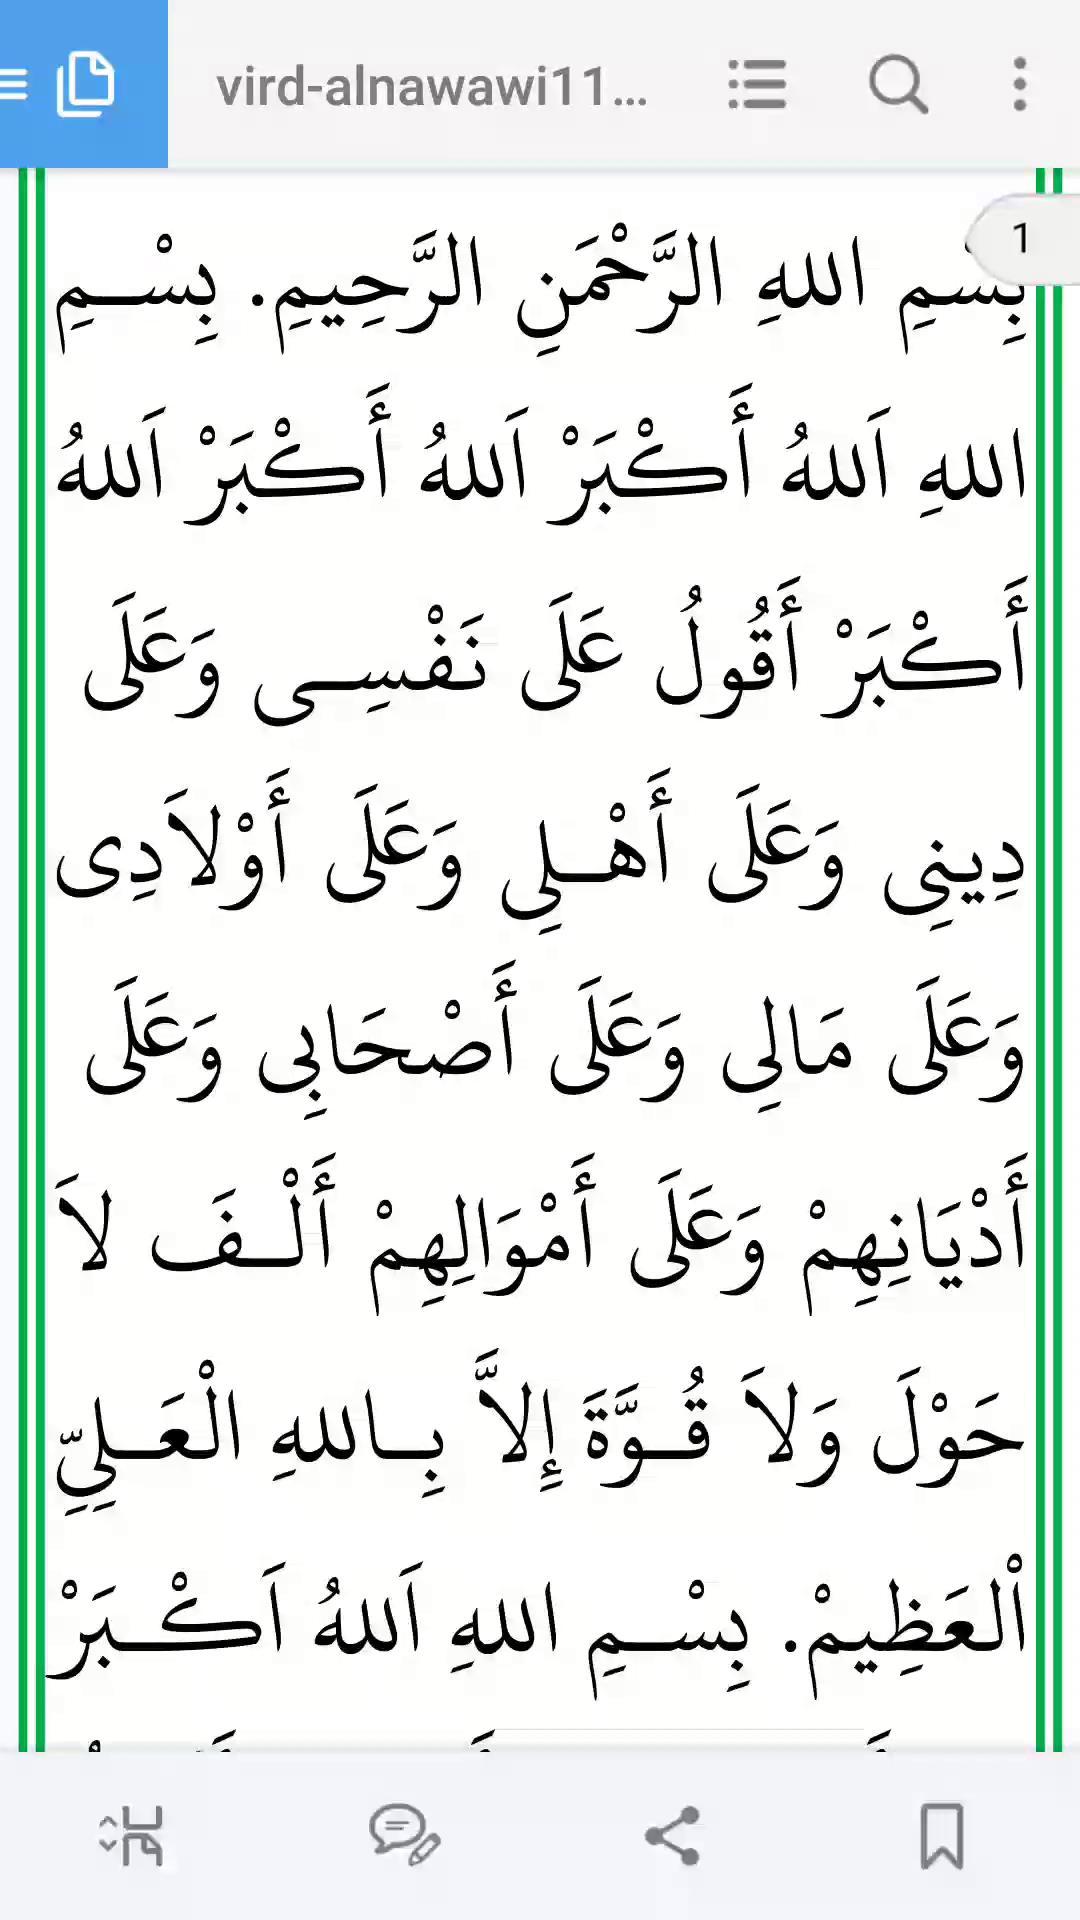 vird-alnawawi11...
1
بِسْمِ اللهِ الرَّحْمَنِ الرَّحِيمِ. بِسْـمِ
اللهِ اَللهُ أَكْبَرْ اَللهُ أَكْبَرْ اَللهُ
أَكْبَرْ أَقُولُ عَلَى نَفْسِـى وَعَلَى
دِينِى وَعَلَى أَهْـلِى وَعَلَى أَوْلاَدِى
وَعَلَى مَالِى وَعَلَى أَصْحَابِى وَعَلَى
أَدْيَانِهِمْ وَعَلَى أَمْوَالِهِمْ أَلْـفَ لاَ
حَوْلَ وَلاَ قُـوَّةَ إِلاَّ بِـاللهِ الْعَـلِيِّ
اْلعَظِيمْ. بِسْـمِ اللهِ اَللهُ اَكْـبَرْ